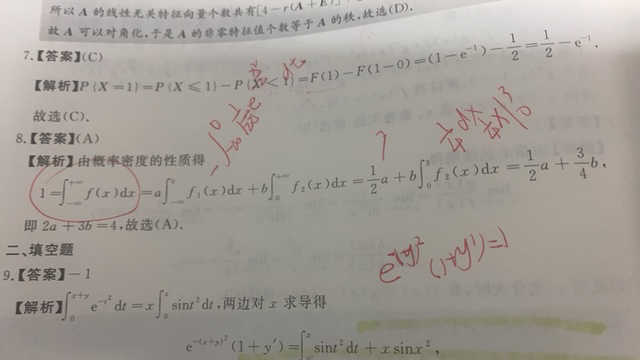 所以 A 的线性无关特征向量个数共有[4-r(A+E)]
故 A 可以对角化,于是 A 的非零特征值个数等于 A 的秩,故选(D).
7.【答案】(C)
【解析】P{X=1}=P{X≤1}-P{X<1}=F(1)-F(1-0)=(1-e⁻¹)-1/2=1/2-e⁻¹.
故选(C).
8.【答案】(A)
【解析】由概率密度的性质得
1=∫_{-∞}^{+∞} f(x)dx=a∫_{-∞}^{0} f₁(x)dx+b∫_{0}^{+∞} f₂(x)dx=1/2 a+b∫_{0}^{3} f₂(x)dx=1/2 a+3/4 b,
即 2a+3b=4,故选(A).
e^{-(x+y)²}(1+y')=1
二、填空题
9.【答案】-1
【解析】∫_{0}^{x+y} e^{-t²}dt=x∫_{0}^{x} sint²dt,两边对 x 求导得
e^{-(x+y)²}(1+y')=∫_{0}^{x} sint²dt+xsinx²,